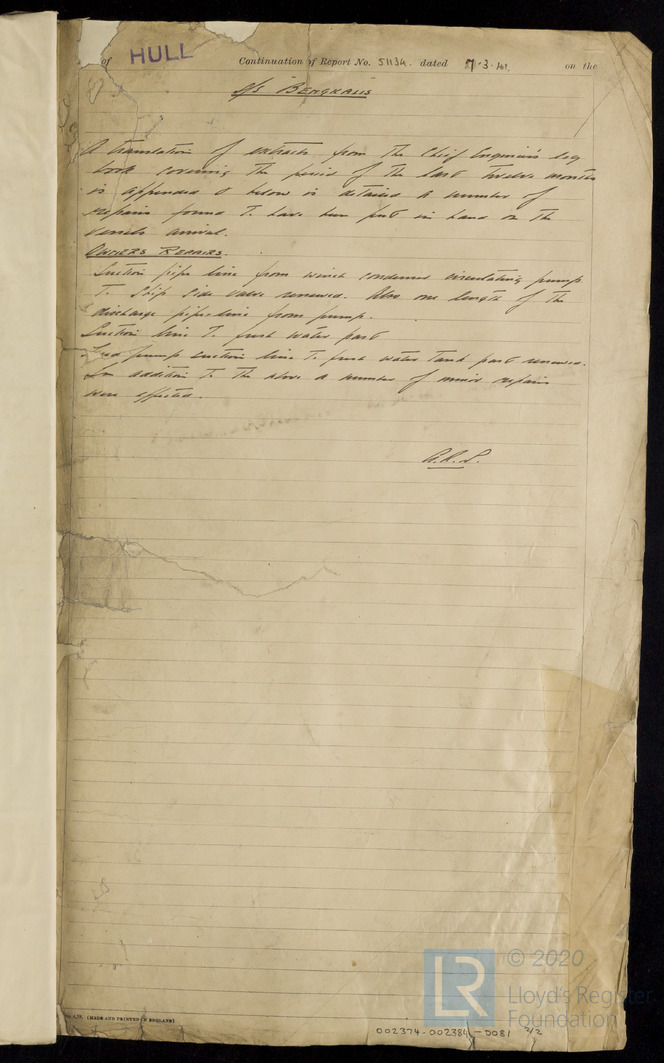 of HULL Continuation of Report No. 51134. dated 7-3-41. on the
s/s "BENGKALIS
A translation of extracts from the Chief Engineers log
book covering the period of the last twelve months
is appended & below is detailed a number of
repairs found to have been put in hand on the
vessels arrival.
OWNERS REPAIRS.
Suction pipe line from winch condenser circulating pump
to ship side valve renewed. Also one length of the
discharge pipe line from pump.
Suction line to fresh water part
Feed pump suction line to fresh water tank part renewed.
In addition to the above a number of minor repairs
were effected.
(MADE AND PRINTED IN ENGLAND)
002374-002384-0081 2/2
LR © 2020
Lloyd's Register
Foundation